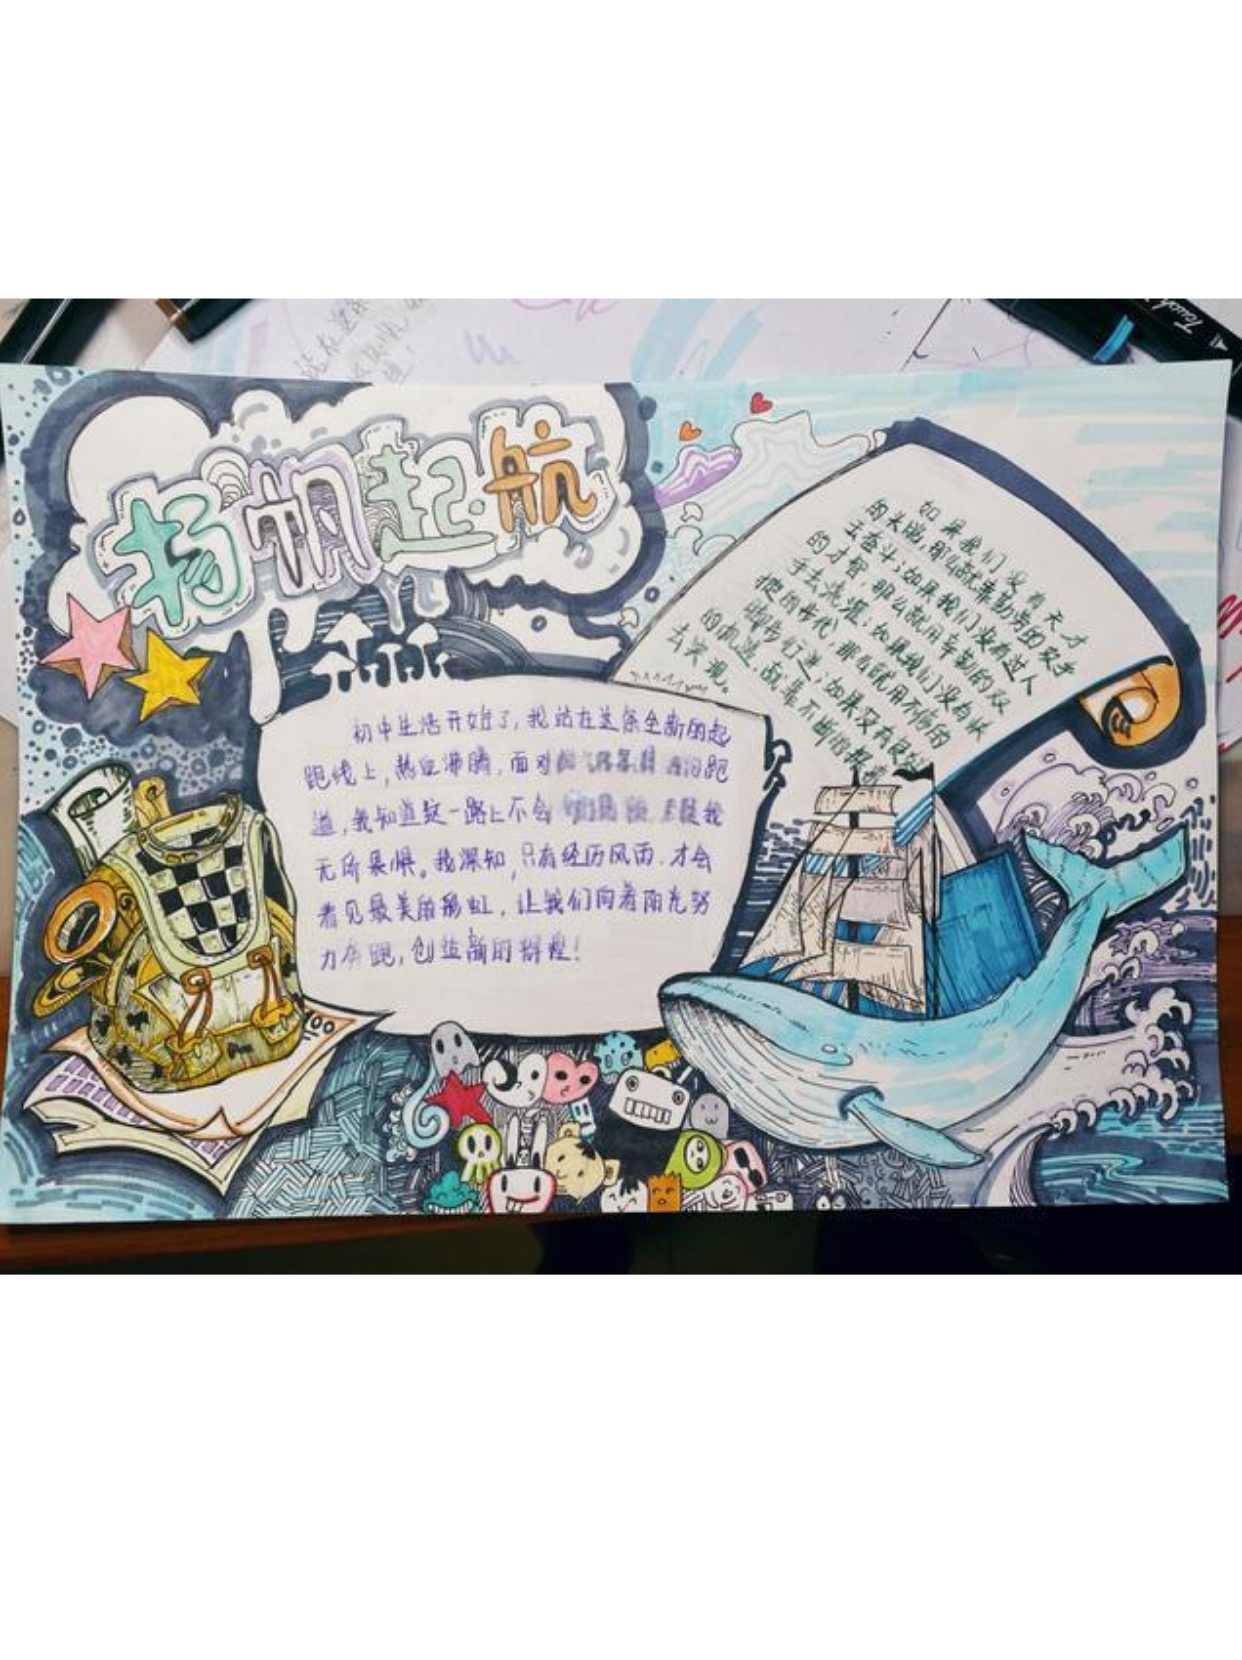 扬帆起航
初中生活开始了,我站在这条全新的起
跑线上,热血沸腾,面对 跑
道,我知道这一路上不会 我
无所畏惧。我深知,只有经历风雨,才会
看见最美的彩虹,让我们向着阳光努
力奔跑,创造新的辉煌!
如果我们没有天才
的头脑,那么就靠勤劳的双手
去奋斗;如果我们没有过人
的才智,那么就用辛勤的双
手去浇灌;如果我们没有快
捷的步伐,那么就用不倦的
脚步行进;如果没有良好
的机遇,就靠不断
去实现。
Touch
100